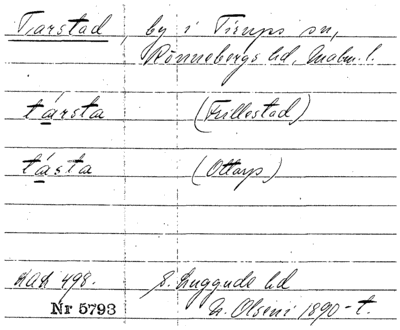 Tarstad, by i Tirups sn,
Rönnebergs hd, Malm. l.
társta (Fillestad)
tásta (Ottarp)
LAL 498. S. Luggude hd
Nr 5793 N. Olseni 1890-t.